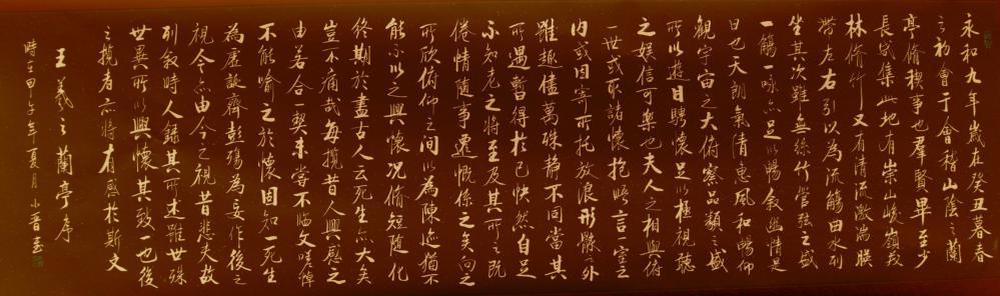 永和九年歲在癸丑暮春
之初會于會稽山陰之蘭
亭脩稧事也群賢畢至少
長咸集此地有崇山峻嶺茂
林脩竹又有清流激湍映
帶左右引以為流觴曲水列
坐其次雖無絲竹管弦之盛
一觴一咏亦足以暢敘幽情是
日也天朗氣清惠風和暢仰
觀宇宙之大俯察品類之盛
所以遊目騁懷足以極視聽
之娛信可樂也夫人之相與俯
一世或取諸懷抱晤言一室之
內或因寄所托放浪形骸之外
雖趣萬殊静不同當其
所遇暫得於己快然自足
不知老之將至及其所之既
倦情隨事遷慨係之矣向之
所欣俯仰之間以為陳迹猶不
能不以之興懷況脩短隨化
終期於盡古人云死生亦大矣
豈不痛哉每攬昔人興感之
由若合一契未嘗不臨文嗟悼
不能喻之於懷固知一死生
為虛誕齊彭殤為妄作後之
視今亦由今之視昔悲夫故
列敘時人錄其所述雖世殊
世異所以興懷其致一也後
之攬者亦將有感於斯文
王羲之蘭亭序
時在甲午年夏月小晋書